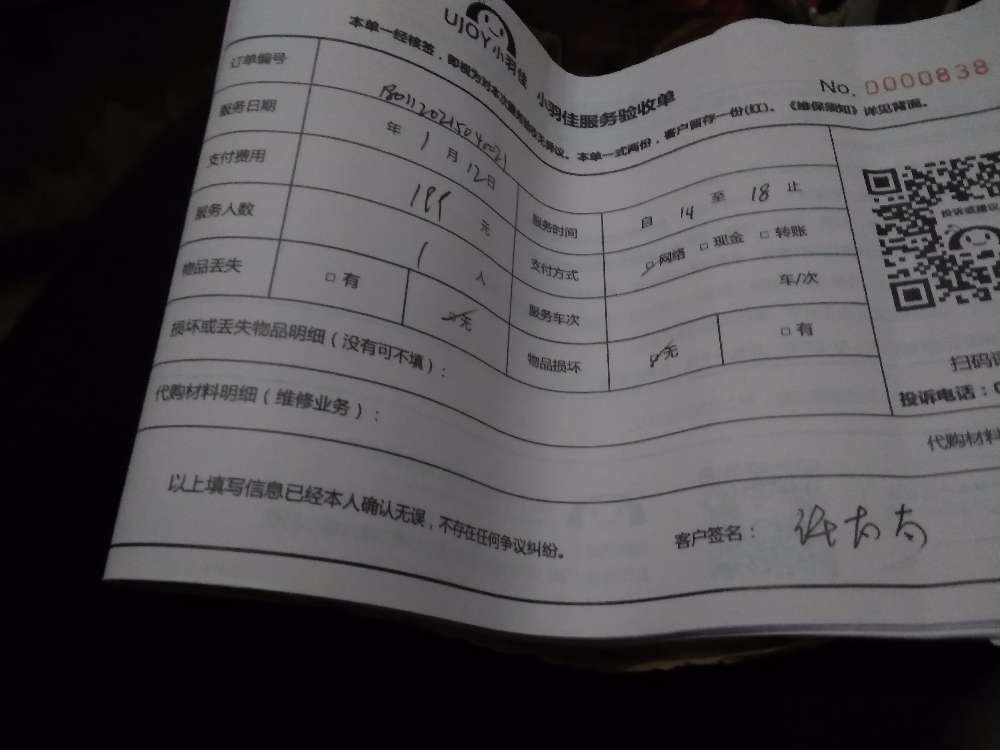 UJOY小羽佳 小羽佳服务验收单
No. 0000838
本单一经核签，即视为对本次服务验收无异议。本单一式两份，客户留存一份(红)。《维保须知》详见背面。
订单编号
服务日期 年 1 月 12 日 服务时间 自 14 至 18 止
支付费用 元 支付方式 □网络 □现金 □转账
服务人数 1 人 服务车次 车/次
物品丢失 □有 □无 物品损坏 □无 □有
损坏或丢失物品明细（没有可不填）：
代购材料明细（维修业务）：
代购材料
投诉或建议
扫码
投诉电话：0
以上填写信息已经本人确认无误，不存在任何争议纠纷。
客户签名： 太太